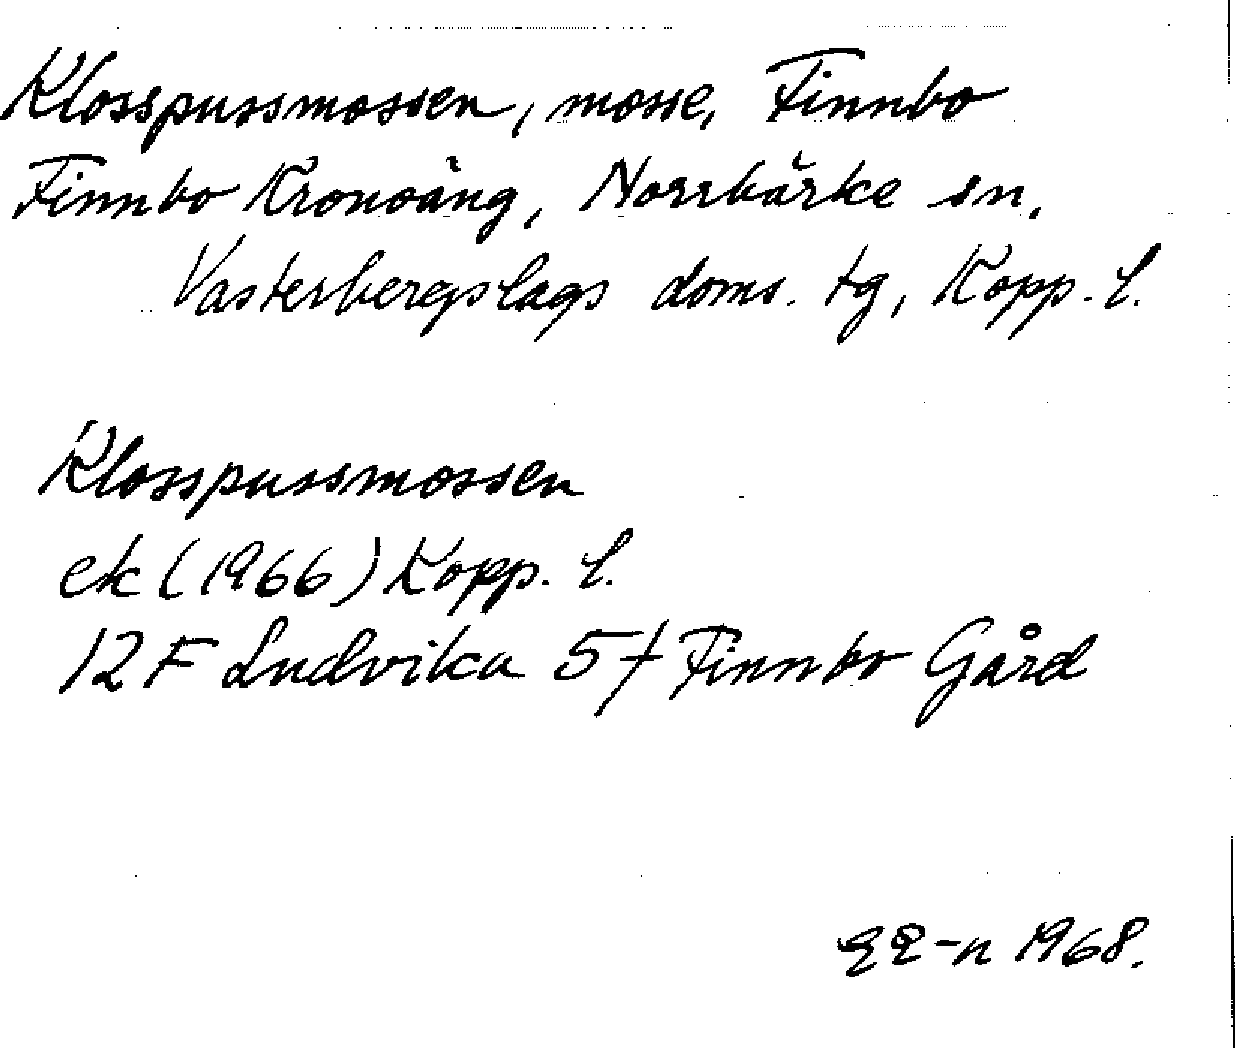 Klosspussmossen, mosse, Finnbo
Finnbo Kronoäng, Norrbärke sn,
Vasterbergslags doms. tg, Kopp. l.
Klosspussmossen
ek (1966) Kopp. l.
12 F Ludvika 5 f Finnbo Gård
1968.